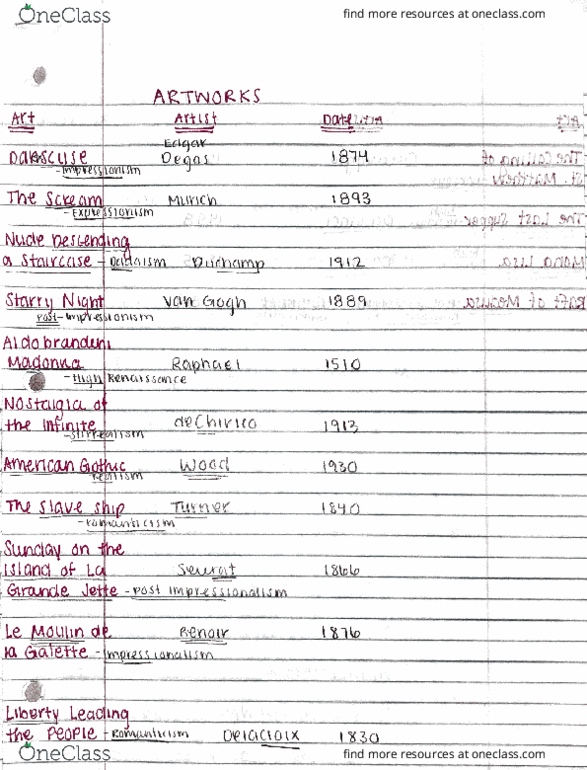 OneClass find more resources at oneclass.com
ARTWORKS
Art Artist Date
Edgar
Danscuse Degas 1874
-Impressionism
The Scream Munch 1893
-Expressionism
Nude Descending
a Staircase - Dadaism Duchamp 1912
Starry Night Van Gogh 1889
Post-Impressionism
Aldobrandini
Madonna Raphael 1510
-High Renaissance
Nostalgia of
the Infinite deChirico 1913
-surrealism
American Gothic Wood 1930
realism
The Slave Ship Turner 1840
-romanticism
Sunday on the
island of La Seurat 1866
Grande Jette - Post impressionalism
Le Moulin de Renoir 1876
la Galette - Impressionalism
Liberty Leading
the People - Romanticism Delacroix 1830
OneClass find more resources at oneclass.com